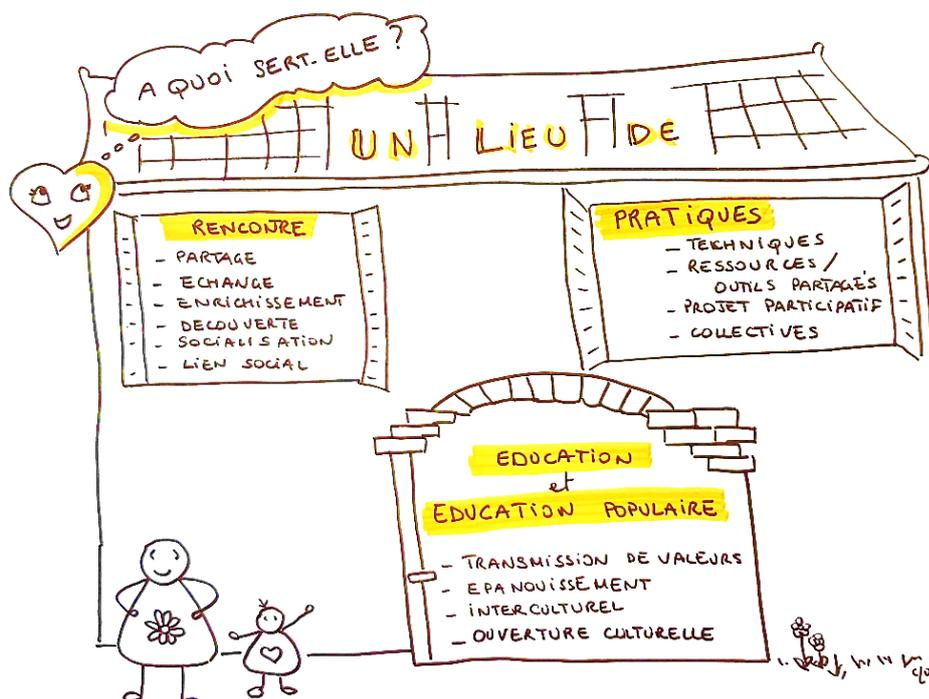 A QUOI SERT-ELLE ?
UN LIEU DE
RENCONTRE
- PARTAGE
- ECHANGE
- ENRICHISSEMENT
- DECOUVERTE
- SOCIALISATION
- LIEN SOCIAL
PRATIQUES
- TECHNIQUES
- RESSOURCES /
OUTILS PARTAGÉS
- PROJET PARTICIPATIF
- COLLECTIVES
EDUCATION
et
EDUCATION POPULAIRE
- TRANSMISSION DE VALEURS
- EPANOUISSEMENT
- INTERCULTUREL
- OUVERTURE CULTURELLE